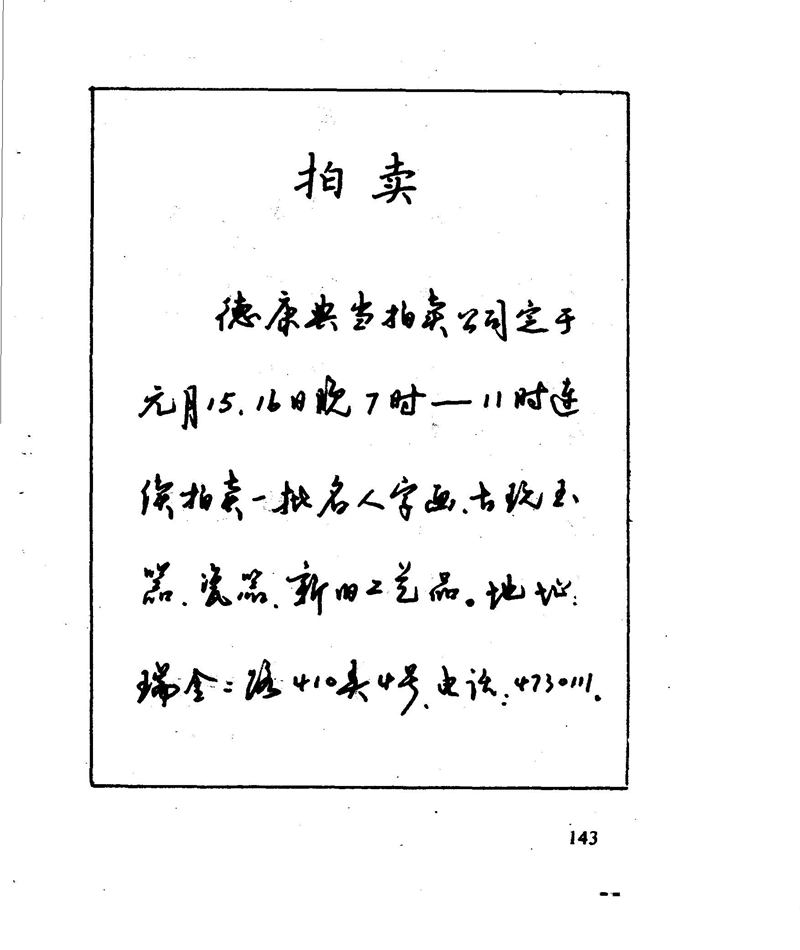 拍卖
德康典当拍卖公司定于
元月15.16日晚7时—11时连
续拍卖一批名人字画、古玩玉
器、瓷器、新旧工艺品。地址:
瑞金二路410弄4号、电话:4730111.
143